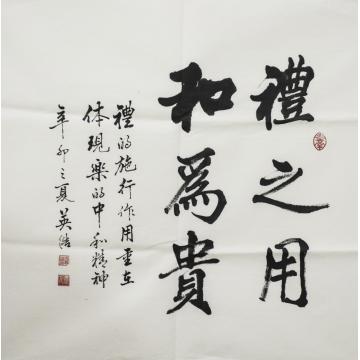 禮之用
和為貴
禮的施行作用重在
体現樂的中和精神
辛卯之夏英浩